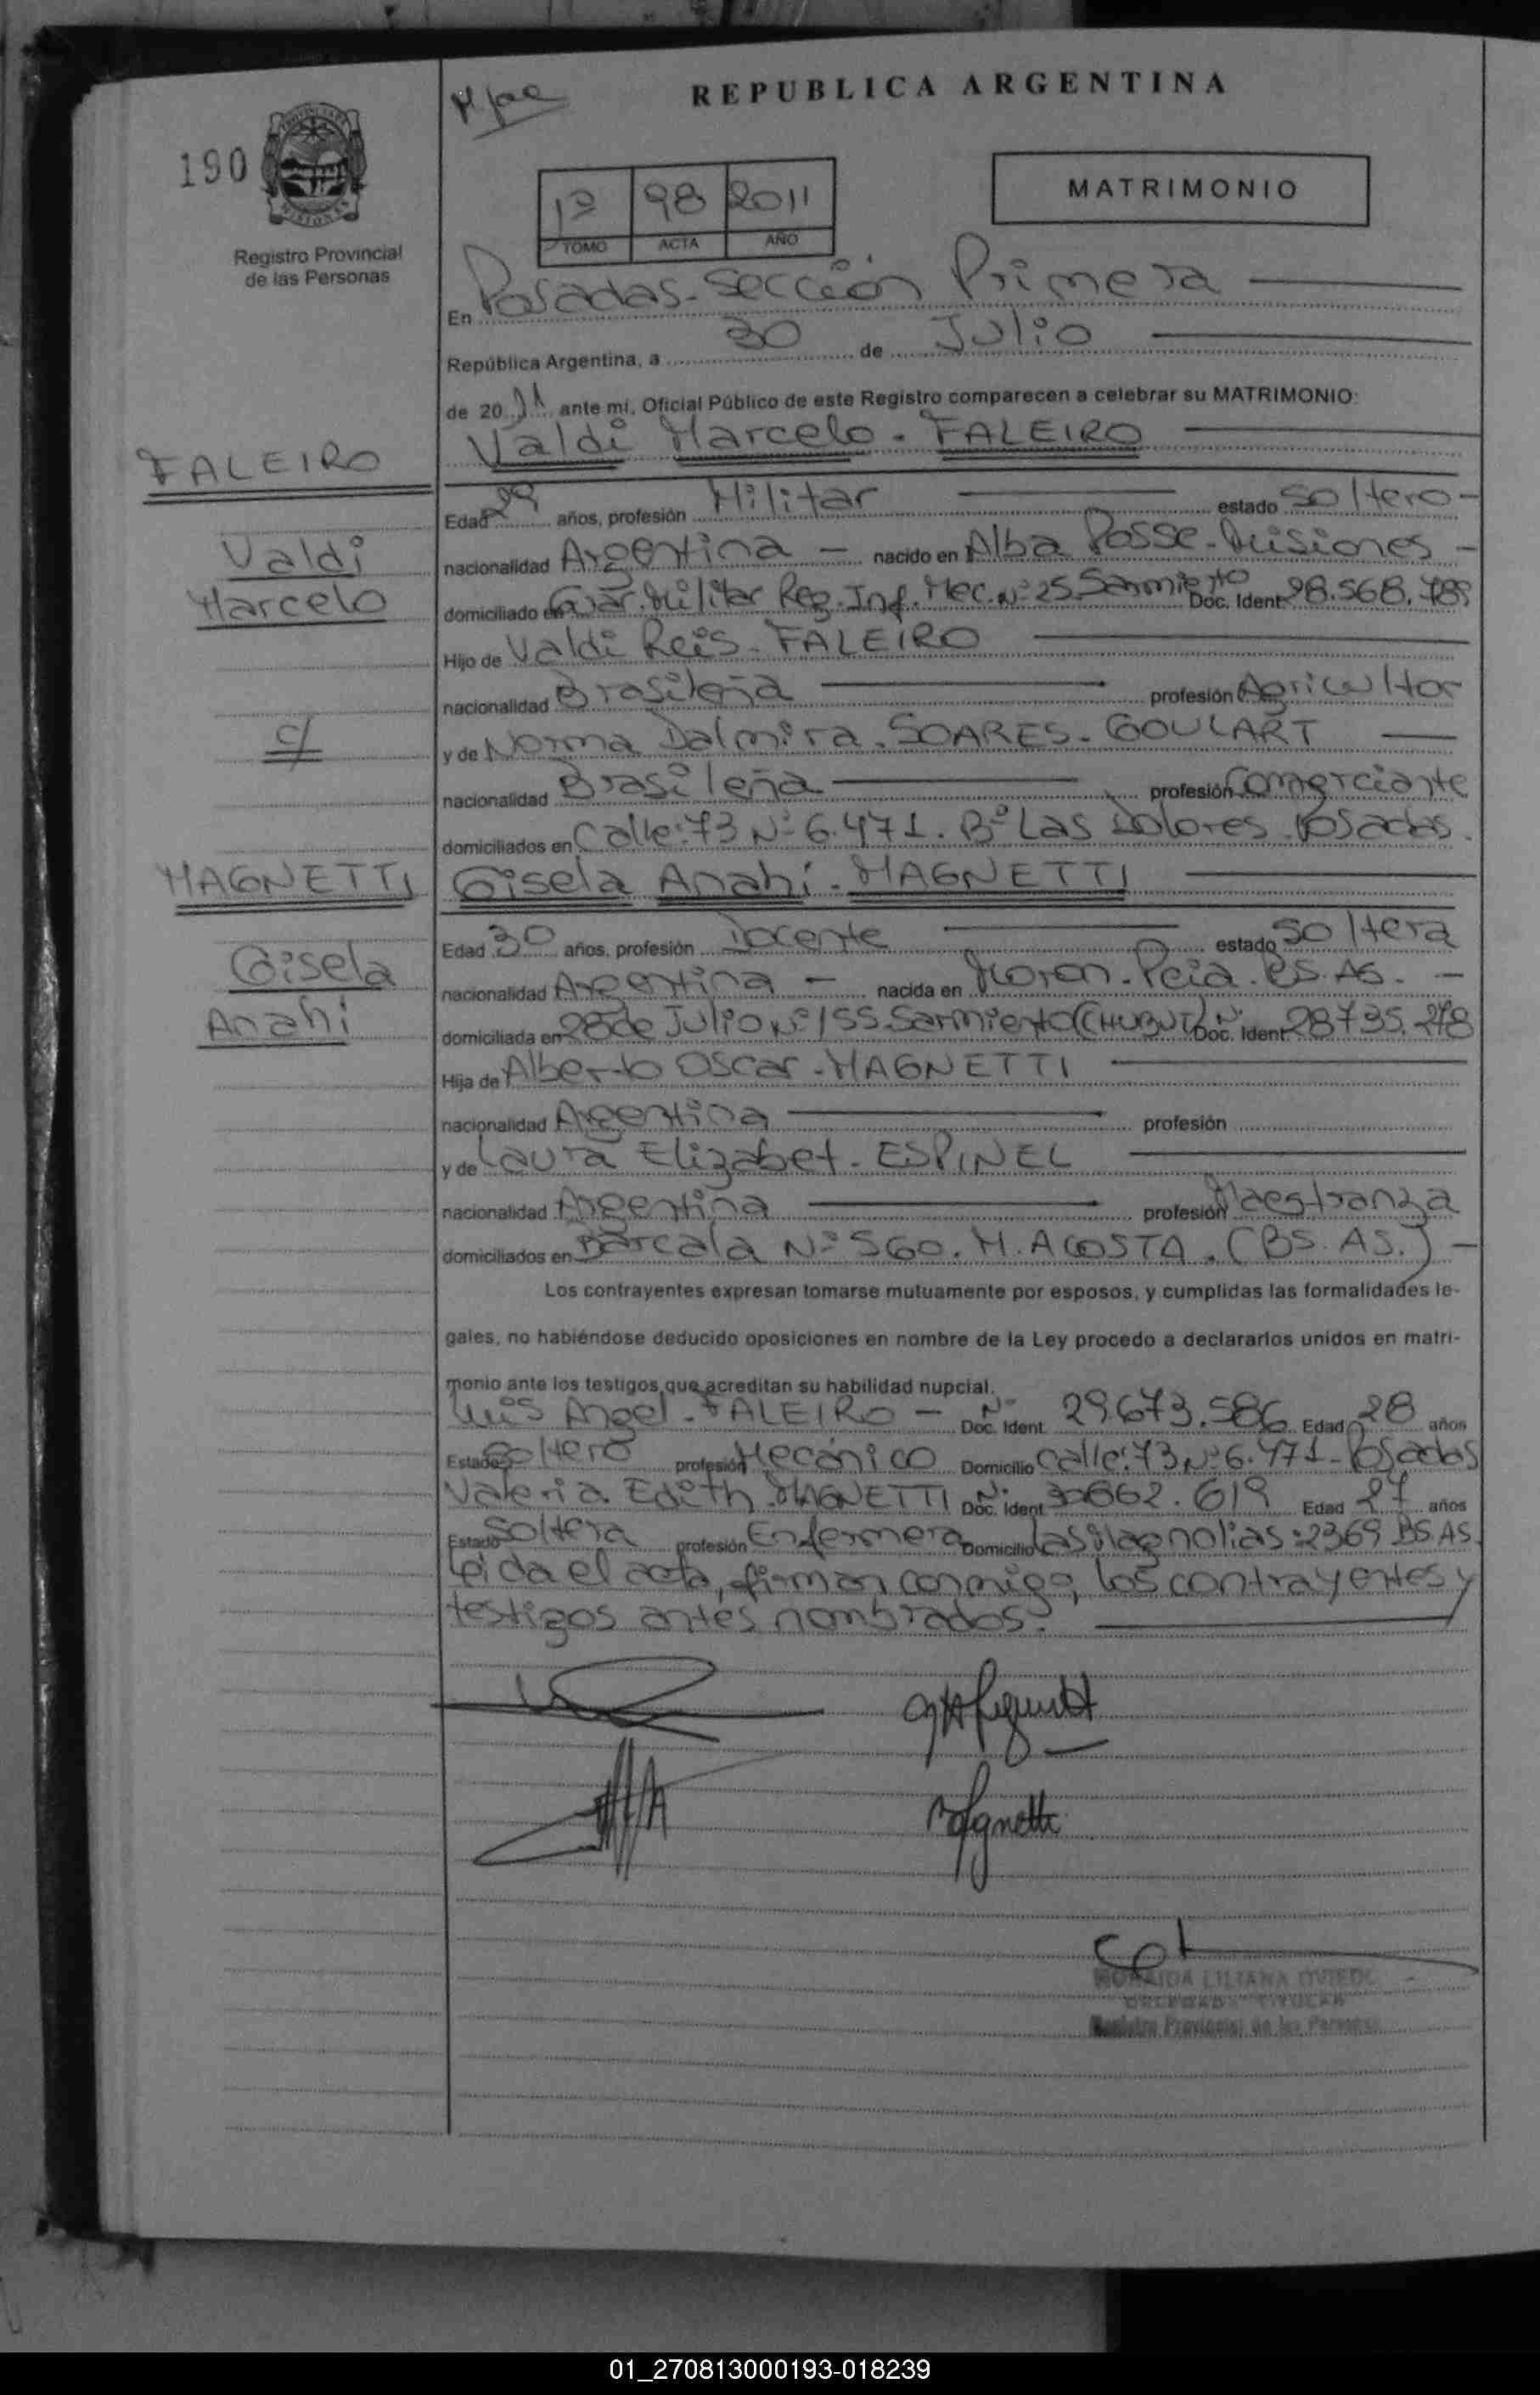 REPUBLICA ARGENTINA
190
MATRIMONIO
1º 98 2011
TOMO ACTA AÑO
Registro Provincial
de las Personas
En Posadas - Sección Primera
República Argentina, a 30 de Julio
de 2011 ante mí, Oficial Público de este Registro comparecen a celebrar su MATRIMONIO:
FALEIRO
Valdi Marcelo - FALEIRO
Edad 29 años, profesión Militar estado Soltero -
Valdi
nacionalidad Argentina - nacido en Alba Posse - Misiones -
Marcelo
domiciliado en Guar. Militar Reg. Inf. Mec. Nº 25 Sarmiento Doc. Ident 28.568.789
Hijo de Valdi Reis - FALEIRO
nacionalidad Brasileña profesión Agricultor
c/
y de Norma Dalmira - SOARES - GOULART
nacionalidad Brasileña profesión Comerciante
domiciliados en Calle: 73 Nº 6.471. Bº Las Dolores. Posadas.
MAGNETTI
Gisela Anahí - MAGNETTI
Edad 30 años, profesión Docente estado Soltera
Gisela
nacionalidad Argentina - nacida en Moron - Pcia. BS. AS. -
Anahí
domiciliada en 28 de Julio Nº 155 Sarmiento (CHUBUT) Nº Doc. Ident 28735.278
Hija de Alberto Oscar - MAGNETTI
nacionalidad Argentina profesión
y de Laura Elizabet - ESPINEL
nacionalidad Argentina profesión Maestranza
domiciliados en Barcala Nº 560. M. ACOSTA. (BS. AS.) -
Los contrayentes expresan tomarse mutuamente por esposos, y cumplidas las formalidades le-
gales, no habiéndose deducido oposiciones en nombre de la Ley procedo a declararlos unidos en matri-
monio ante los testigos que acreditan su habilidad nupcial.
Luis Angel - FALEIRO - Nº Doc. Ident. 29.673.586 Edad 28 años
Estado Soltero profesión Mecánico Domicilio Calle: 73 Nº 6.471 - Posadas
Valeria Edith - MAGNETTI Nº Doc. Ident 30662.619 Edad 27 años
Estado Soltera profesión Enfermera Domicilio Las Magnolias: 2369 BS AS.
Leida el acta, firman conmigo, los contrayentes y
testigos antes nombrados.
Magnetti
LILIANA OVIEDO
DELEGADA TITULAR
Registro Provincial de las Personas
01_270813000193-018239